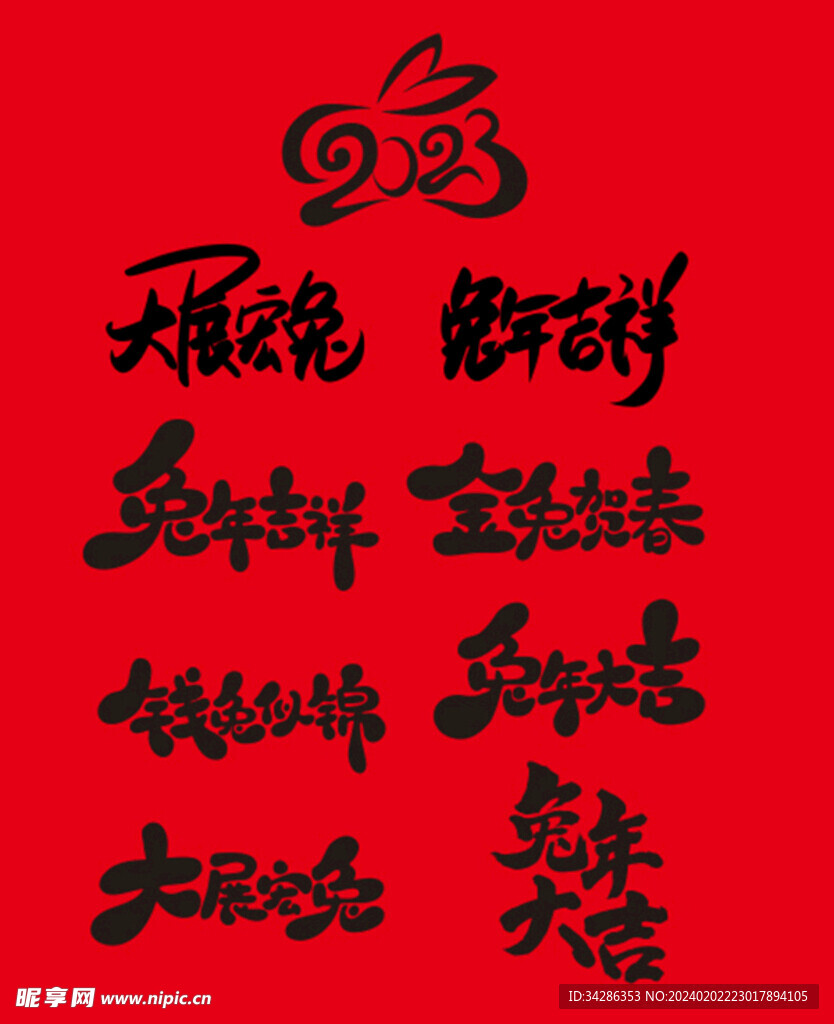 2023
大展宏兔
兔年吉祥
兔年吉祥
金兔贺春
钱兔似锦
兔年大吉
大展宏兔
兔年
大吉
昵享网 www.nipic.cn
ID:34286353 NO:20240202223017894105